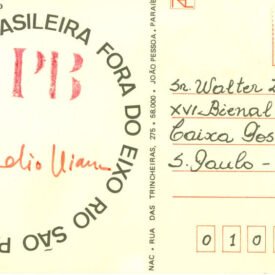 BRASILEIRA FORA DO EIXO RIO SÃO P
PB
NAC • RUA DAS TRINCHEIRAS, 275 • 58.000 • JOÃO PESSOA, PARAÍB
Sr. Walter
XVI Bienal
Caixa Pos
S. Paulo -
0 1 0